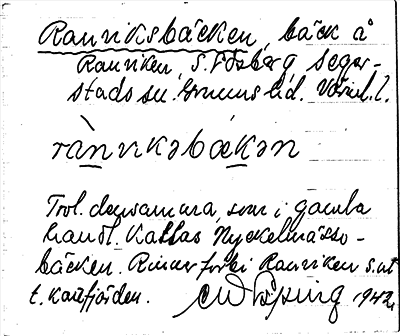 Ranviksbäcken, bäck å
Ranviken, S. Vösberg, Seger-
stads sn. Grums hd. Värml. l.
rànvɩkəbäkən
Trol. densamma, som i gamla
handl. kallas Nyckelmässo-
bäcken. Rinner förbi Ranviken s. ut
t. Kattfjorden. 1942.